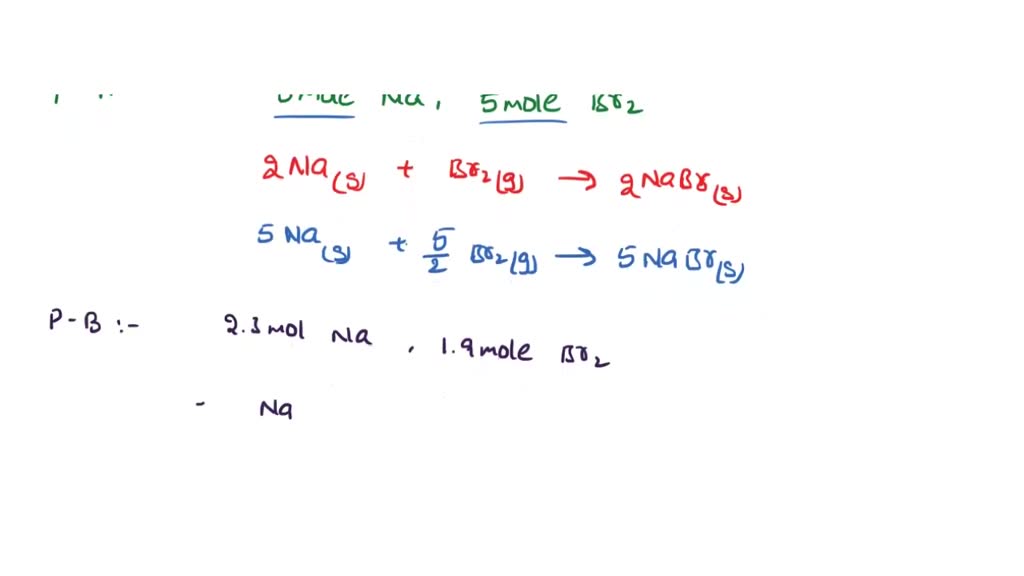 Na, 5 mole Br2
2Na(s) + Br2(g) → 2NaBr(s)
5 Na(s) + 5/2 Br2(g) → 5 NaBr(s)
P-B :- 2.3 mol Na , 1.9 mole Br2
- Na